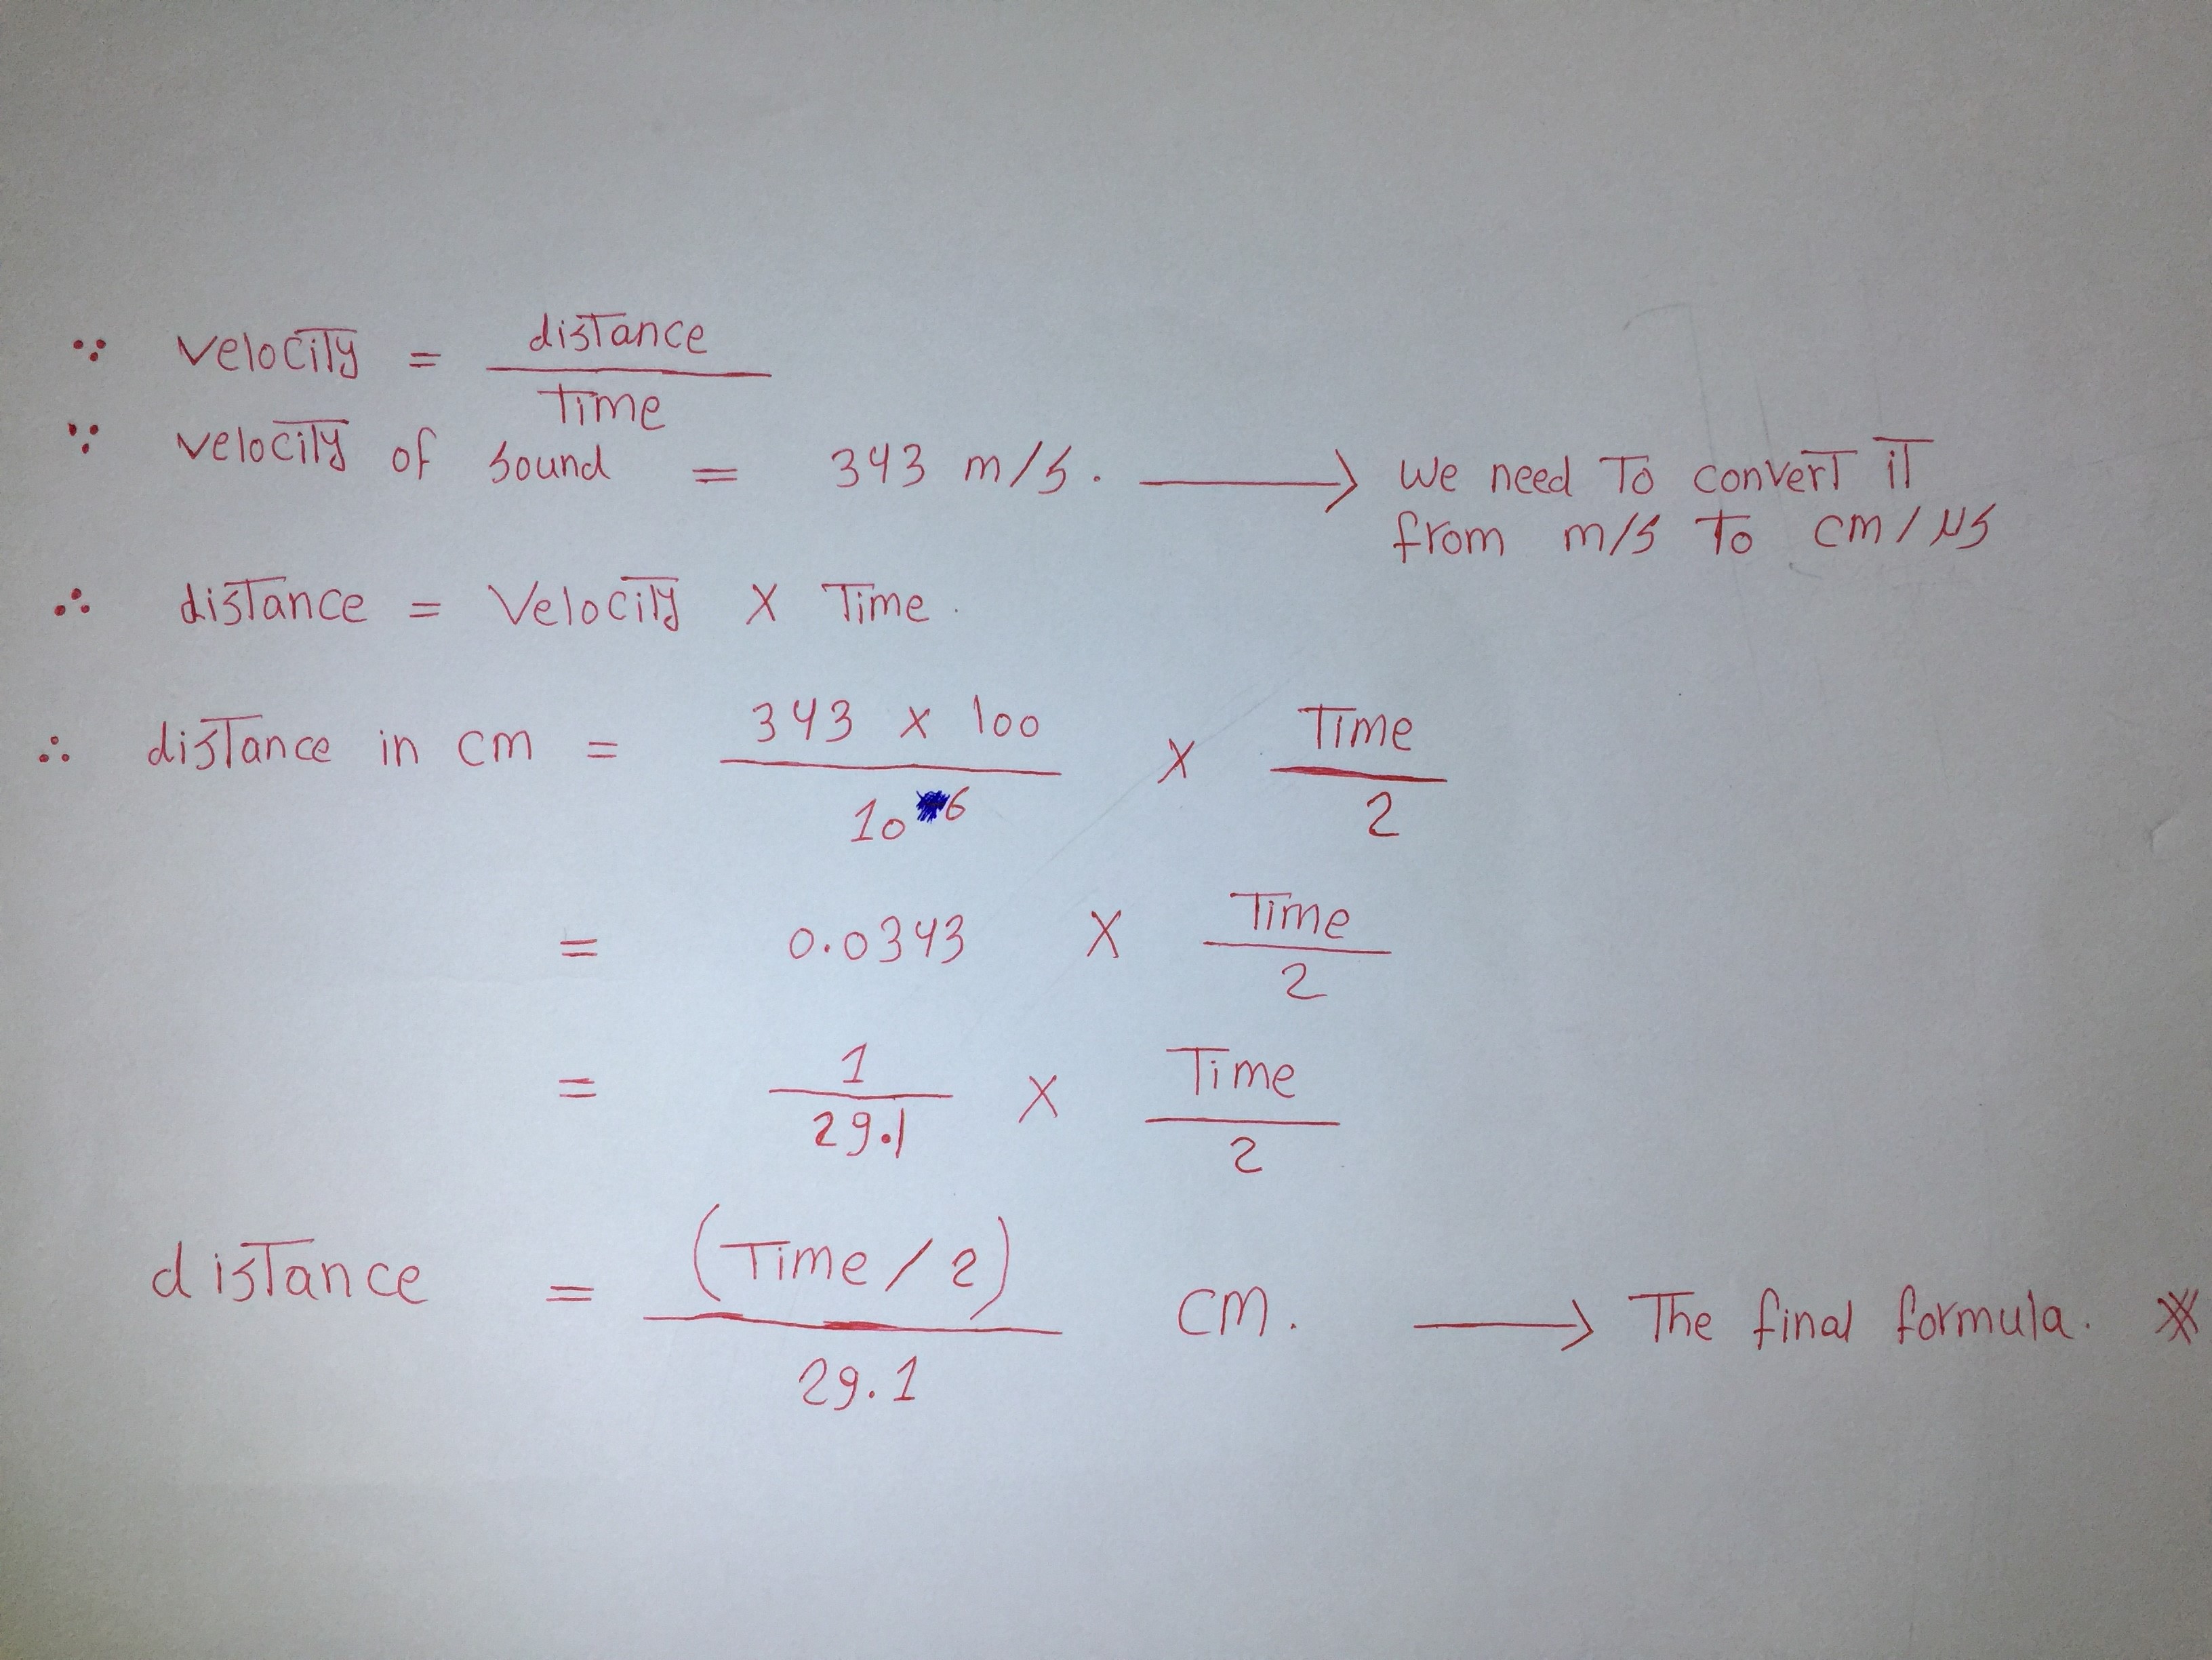 ∵ velocity = distance / Time
∵ velocity of sound = 343 m/s. ⟶ we need To convert it
from m/s To cm/µs
∴ distance = Velocity X Time.
∴ distance in cm = 343 x 100 / 10^6 X Time / 2
= 0.0343 X Time / 2
= 1 / 29.1 X Time / 2
distance = (Time / 2) / 29.1 cm. ⟶ The final formula.